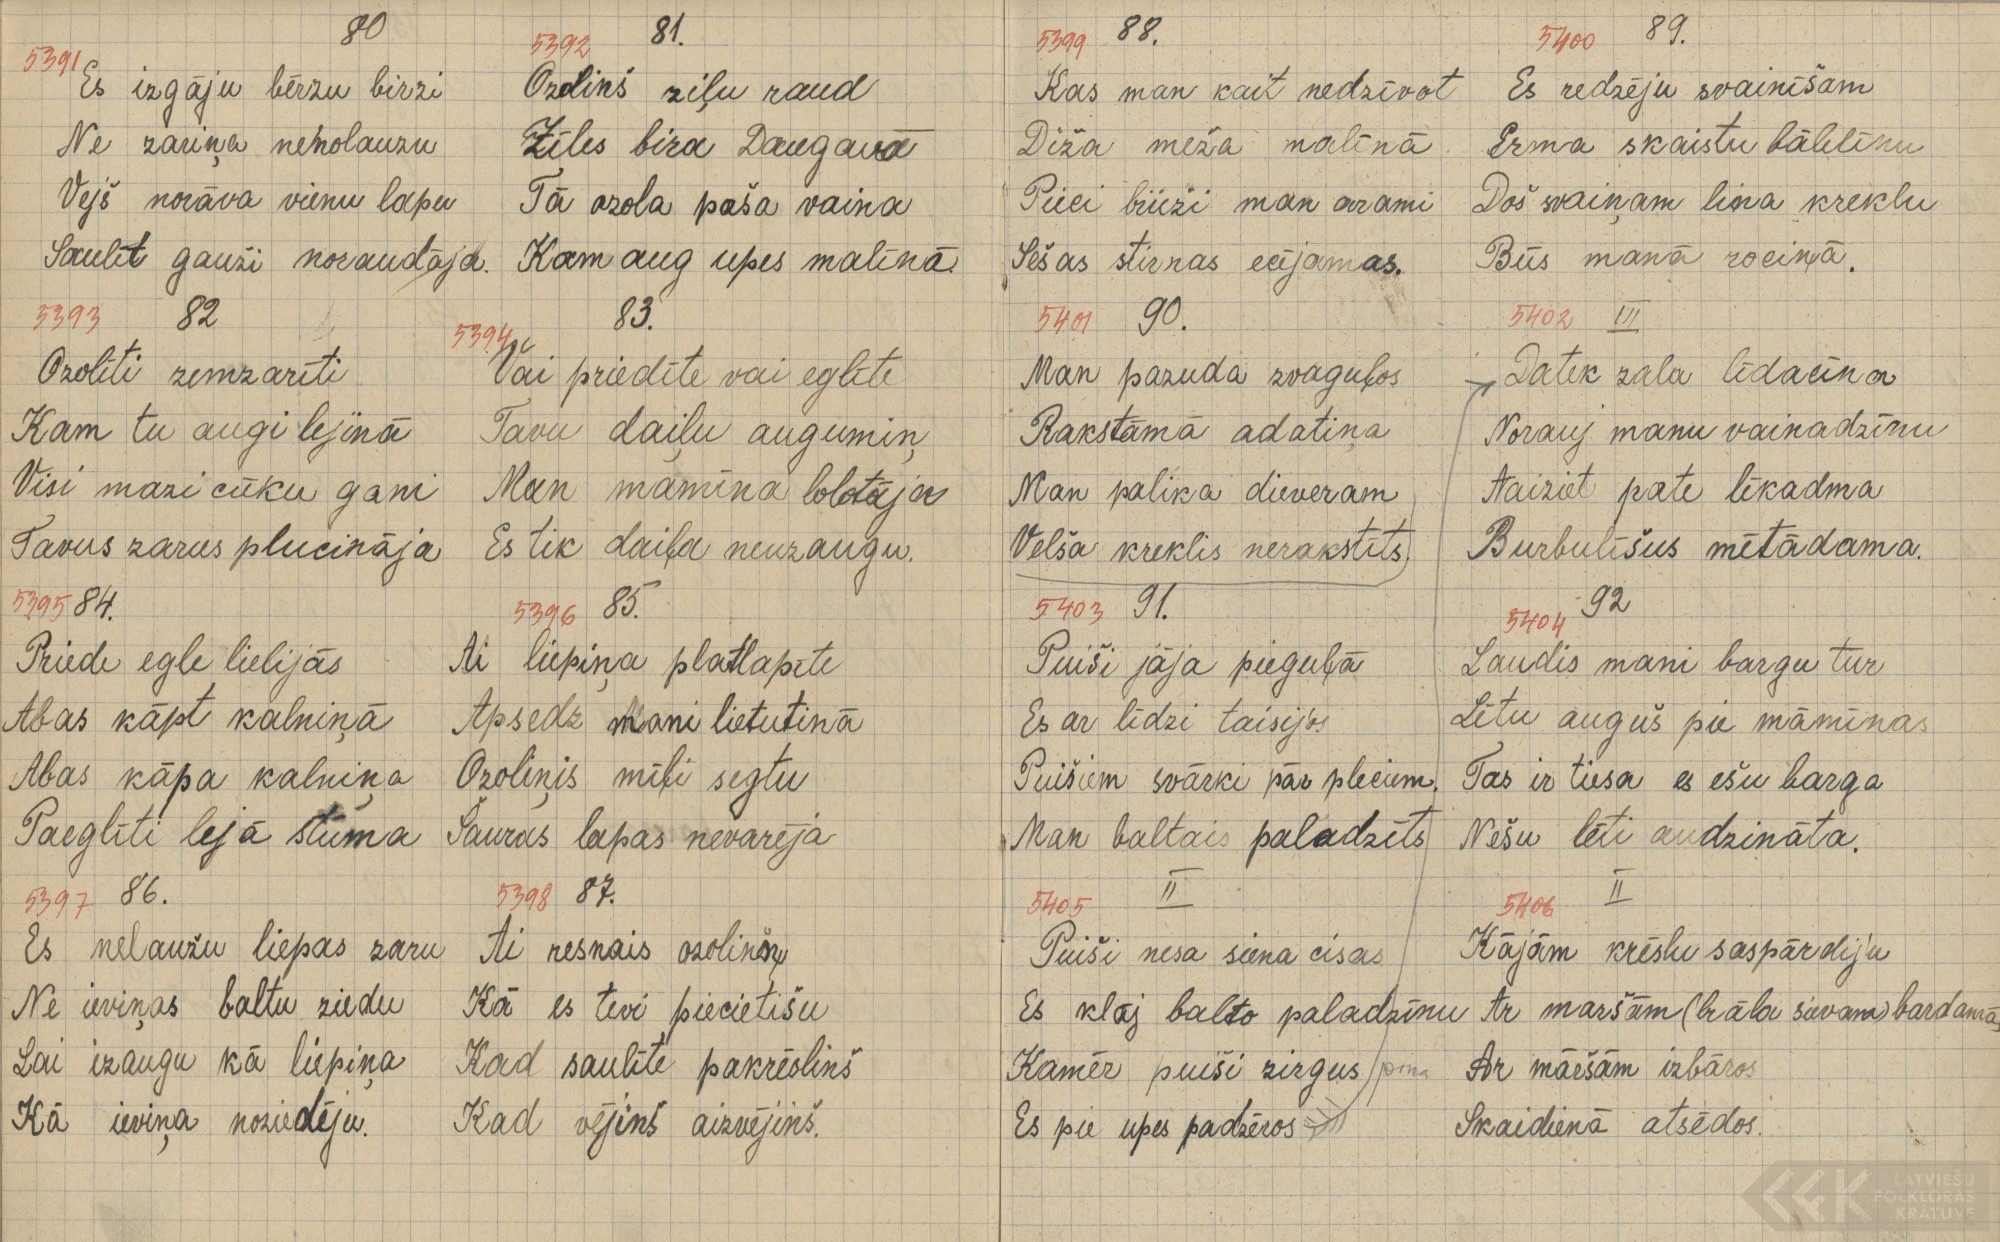 80
5391
Es izgāju bērzu birzi
Ne zariņa nenolauzu
Vejš norāva vienu lapu
Saulīt gauži noraudāja.
5392 81.
Ozoliņš ziļu raud
Zīles bira Daugavā
Tā ozola paša vaina
Kam aug upes malīnā.
5393 82
Ozolīti zemzarīti
Kam tu augi lejinā
Visi mazi cūku gani
Tavus zarus plucināja
5394 83.
Vai priedīte vai eglīte
Tavu daiļu augumiņ
Man māmīna lolotāja
Es tik daiļa neuzaugu.
5395 84.
Priede egle lielijās
Abas kāpt kalniņā
Abas kāpa kalniņa
Paeglīti lejā stūma
5396 85.
Ai liepiņa platlapīte
Apsedz mani lietutinā
Ozoliņis mīļi segtu
Šauras lapas nevarēja
5397 86.
Es nelaužu liepas zaru
Ne ieviņas baltu ziedu
Lai izaugu kā liepiņa
Kā ieviņa noziedēju.
5398 87.
Ai resnais
Kā es tevi piecietišu
Kad saulīte pakrēolinš
Kad vējinš aizvējinš.
5399 88.
Kas man kait nedzīvot
Diža meža malīnā
Pieci brieži man arami
Sešas stirnas ecējamas.
5400 89.
Es redzēju svainīšam
Erma skaistu bālilīnu
Doš svaiņam lina kreklu
Būs manā rociņā.
5401 90.
Man pazuda zvaguļos
Rakstāmā adatiņa
Man palika dieveram
Velša kreklis nerakstīts
5402 III
Datek zaļa līdacīna
Norauj manu vainadzīnu
Aiziet pate līkadma
Burbulīšus mētādama.
5403 91.
Puiši jāja pieguļā
Es ar līdzi taisijos
Puišiem svārki pār pleciem.
Man baltais paladzīts
5404 92
Laudis mani bargu tur
Lētu auguš pie māmīnas
Tas ir tiesa es ešu barga
Nešu lēti audzināta.
5405 II
Puiši nesa siena cisas
Es klāj balto paladzīnu
Kamēr puiši zirgus pina
Es pie upes padzēros
5406 II
Kājām krēslu saspārdiju
Ar maršām (brāļa sievam) bardamās
Ar māršām izbāros
Skaidienā atsēdos.
LATVIEŠU
FOLKLORAS
KRĀTUVE